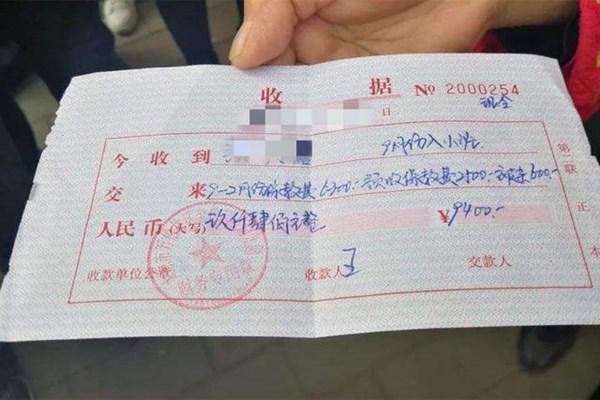 收 据 № 2000254
日 现金
今 收 到 9月份入小班
交 来 9-2月份保教费6300.- 预收保教费2500.- 600.-
人民币(大写) 玖仟肆佰元整 ¥9400.-
收款单位公章 收款人 王 交款人
第二联 正本
财务专用章